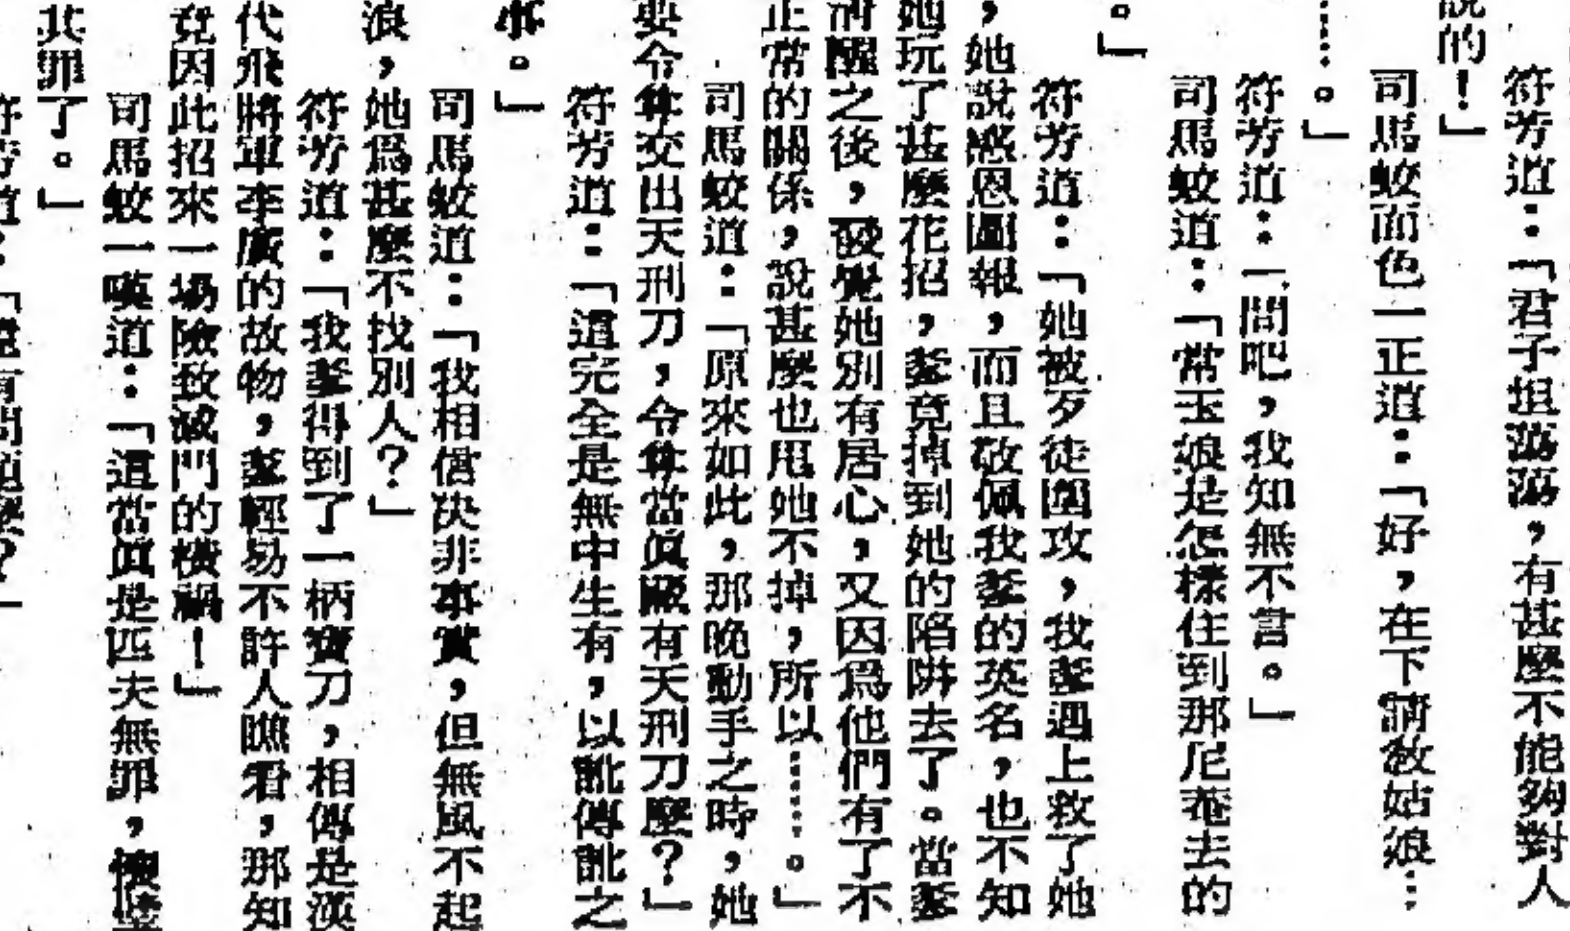 符芳道：「君子坦蕩蕩，有甚麼不能夠對人
說的！」
司馬蛟面色一正道：「好，在下請教姑娘…
……。」
符芳道：「問吧，我知無不言。」
司馬蛟道：「常玉娘是怎樣住到那尼菴去的
。」
符芳道：「她被歹徒圍攻，我爹遇上救了她
，她說感恩圖報，而且敬佩我爹的英名，也不知
她玩了甚麼花招，爹竟掉到她的陷阱去了。當爹
清醒之後，發覺她別有居心，又因爲他們有了不
正常的關係，說甚麼也甩她不掉，所以……。」
司馬蛟道：「原來如此，那晚動手之時，她
要令尊交出天刑刀，令尊當眞藏有天刑刀麼？」
符芳道：「這完全是無中生有，以訛傳訛之
事。」
司馬蛟道：「我相信決非事實，但無風不起
浪，她爲甚麼不找別人？」
符芳道：「我爹得到了一柄寶刀，相傳是漢
代飛將軍李廣的故物，爹輕易不許人瞧看，那知
竟因此招來一場險致滅門的橫禍！」
司馬蛟一嘆道：「這當眞是匹夫無罪，懷璧
其罪了。」
符芳道：「還有問題麼？」